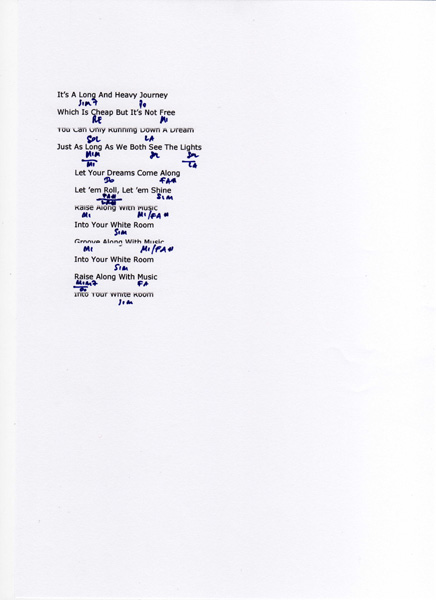 It's A Long And Heavy Journey
SIM7 DO
Which Is Cheap But It's Not Free
RE MI
You Can Only Running Down A Dream
SOL LA
Just As Long As We Both See The Lights
MIM
MI LA
Let Your Dreams Come Along
DO FA#
Let 'em Roll, Let 'em Shine
SIM
Raise Along With Music
MI MI/FA#
Into Your White Room
SIM
Groove Along With Music
MI MI/FA#
Into Your White Room
SIM
Raise Along With Music
MIM7 FA
Into Your White Room
SIM